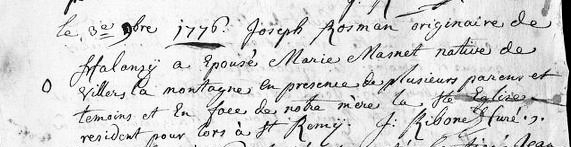 le 3e 9bre 1776. Joseph Rosman originaire de
Halanzÿ a Epousé Marie Masnet native de
Villers la montagne en presence de plusieurs parens et
temoins et En face de notre mere la Ste Eglise
resident pour lors a St Remÿ. J: Ribonet Curé.